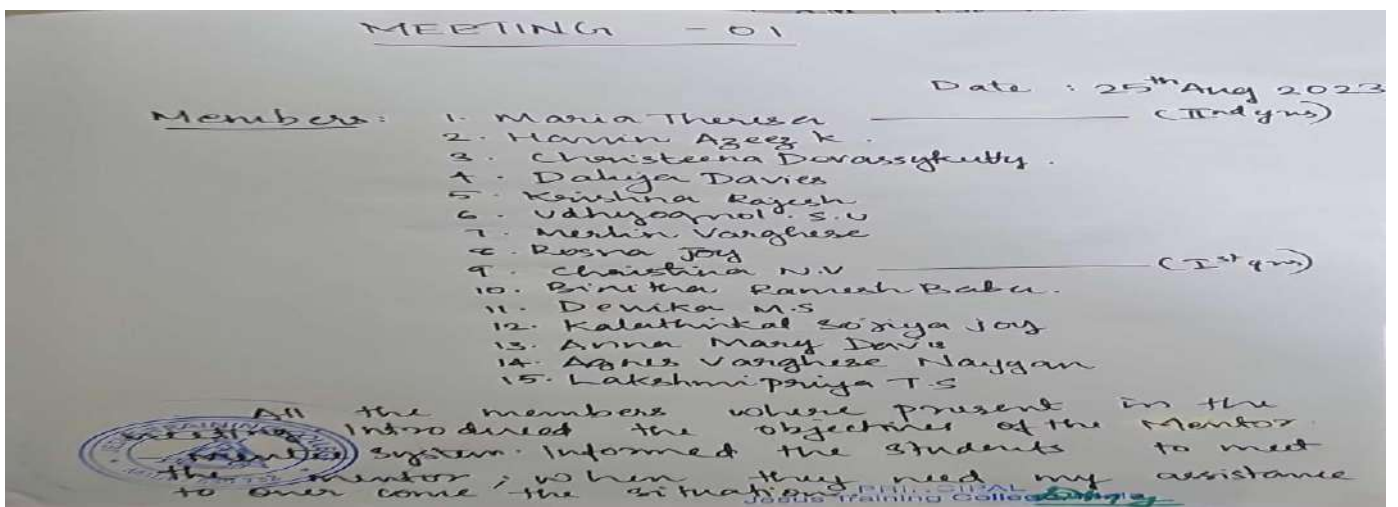 MEETING - 01
Date : 25th Aug 2023
Members: 1. Maria Theresa (IInd yrs)
2. Hannin Azeez K.
3. Christeena Dorassykutty.
4. Dahija Davies
5. Krishna Rajesh
6. Udhyogmol. S.U
7. Merlin Varghese
8. Rosna Joy
9. Christina N.V (Ist yrs)
10. Binitha Ramesh Babu.
11. Devika M.S
12. Kalathinkal Sojiya Joy
13. Anna Mary Davis
14. Agnes Varghese Naygan
15. Lakshmipriya T.S
All the members where present in the
meeting. Introduced the objectives of the Mentor
mentee system. Informed the students to meet
the mentor, when they need my assistance
to over come the situation
PRINCIPAL
Jesus Training College